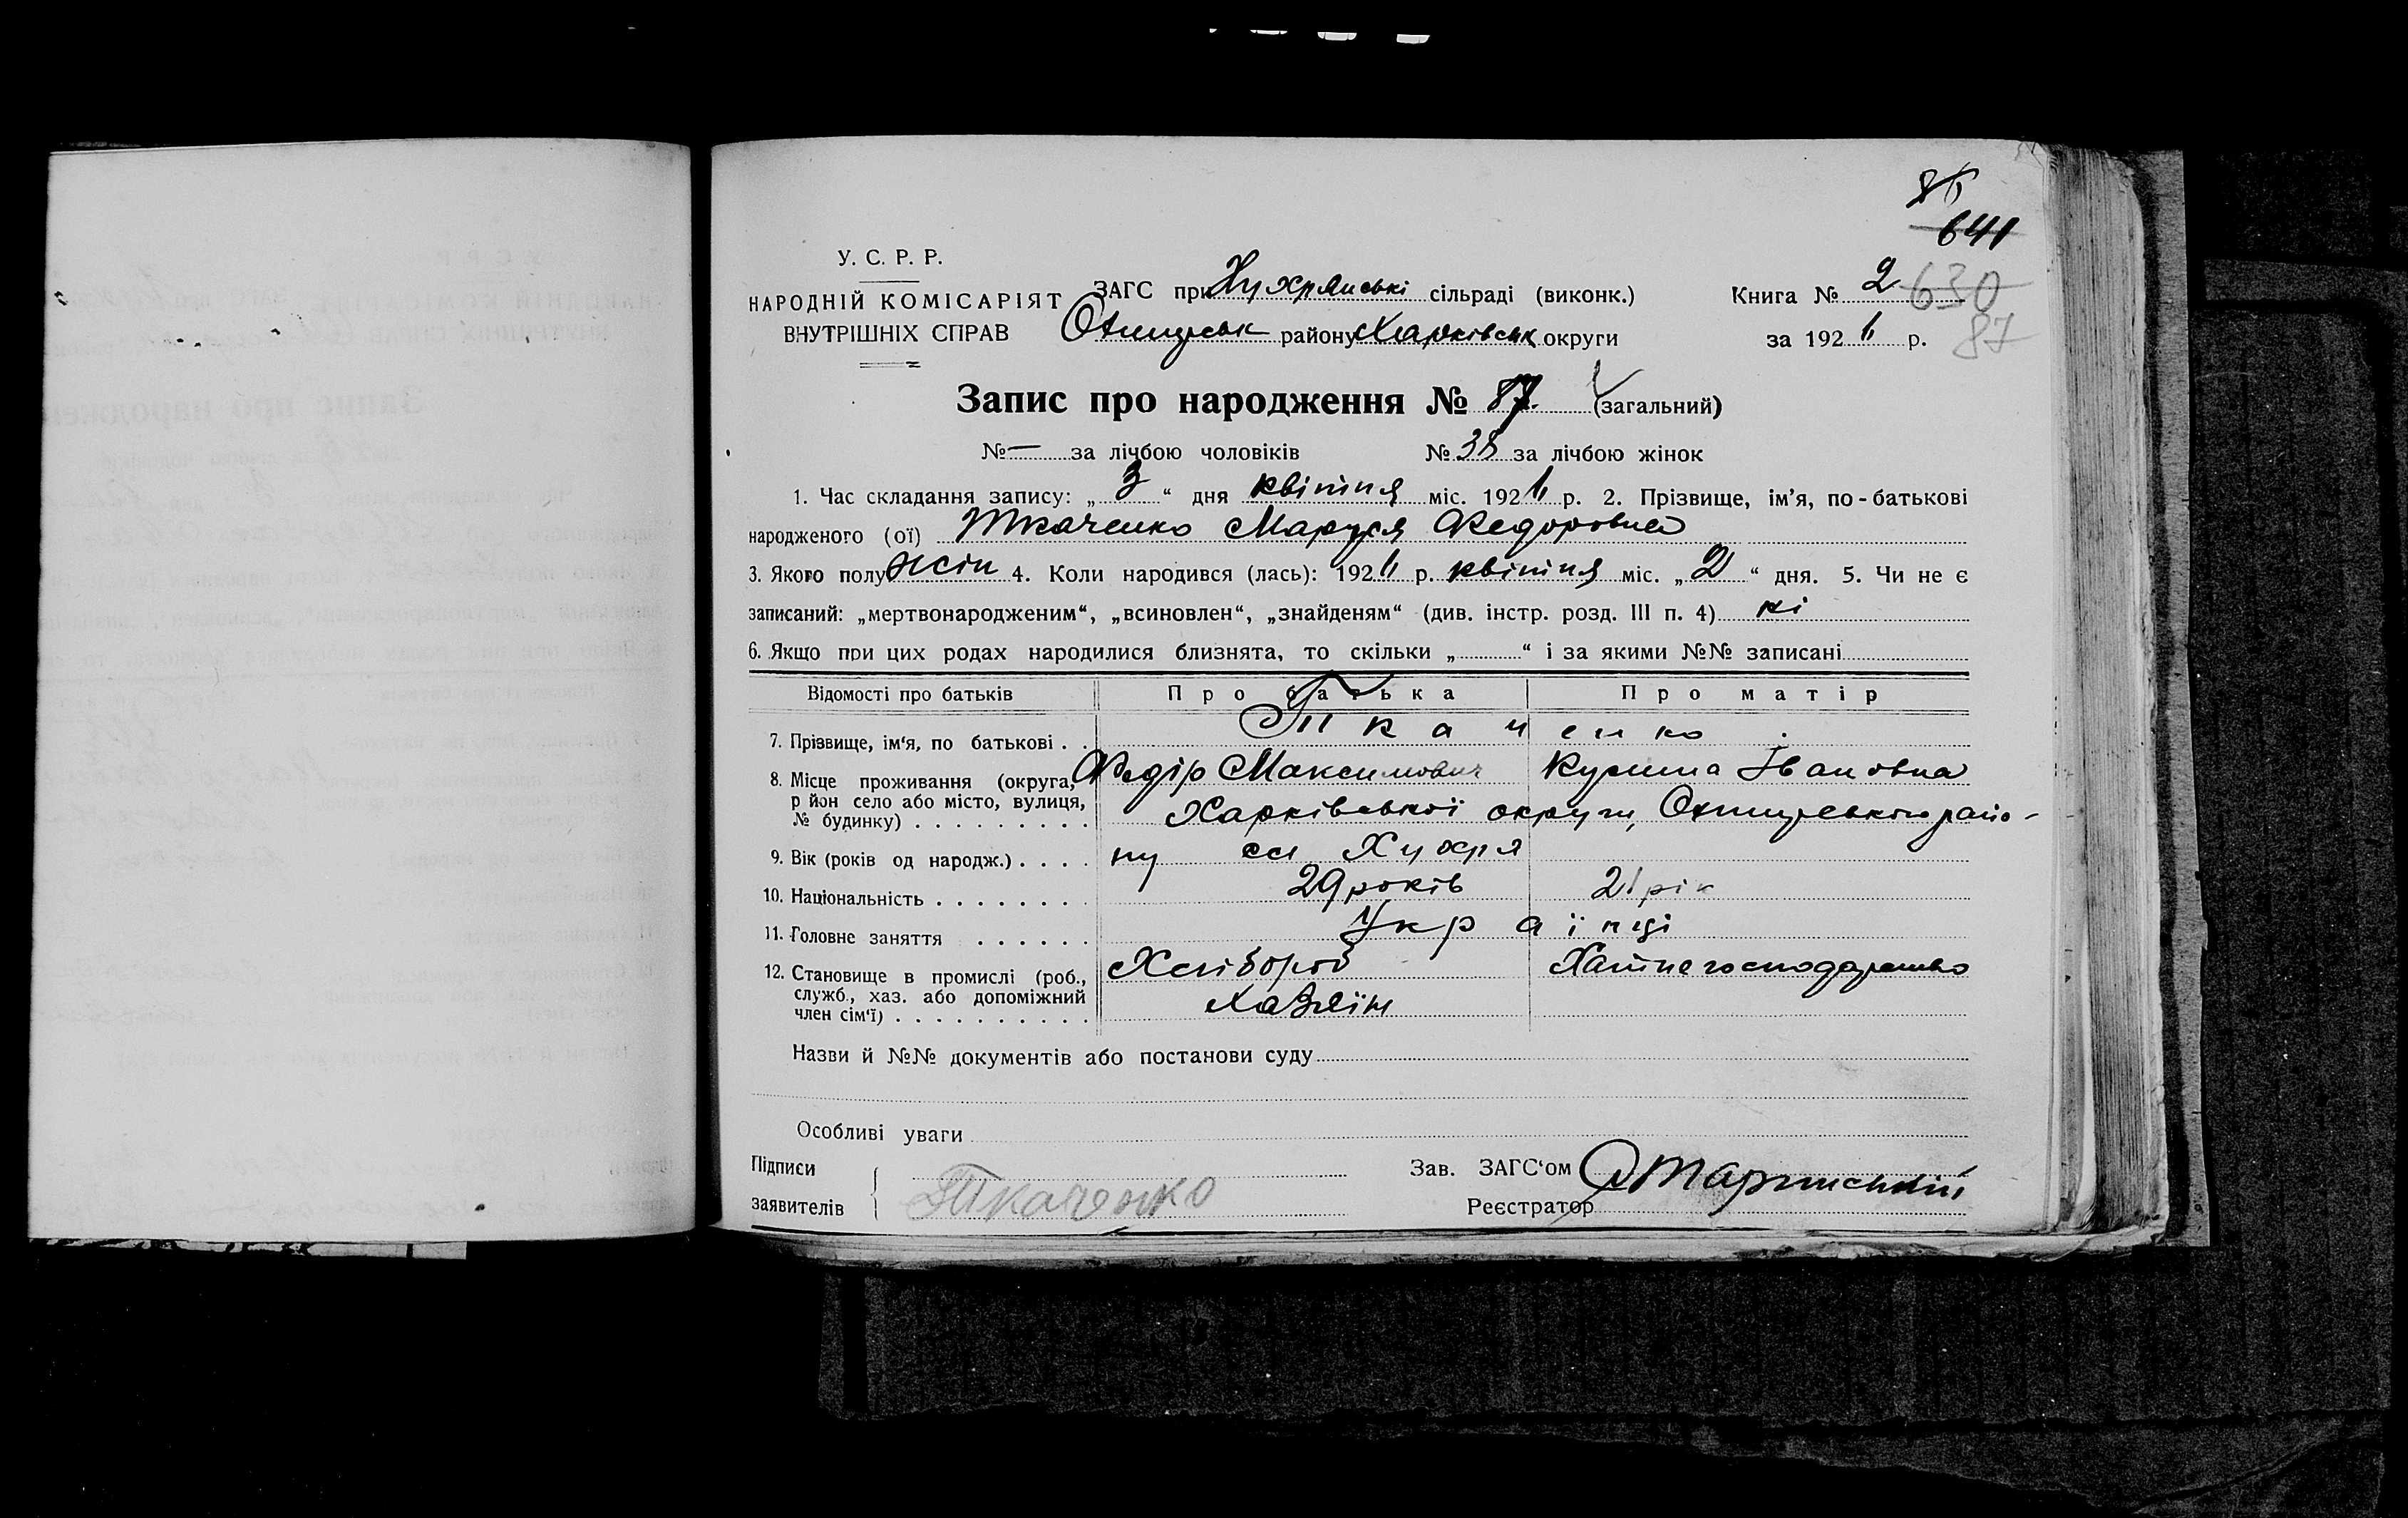 641
У. С. Р. Р.
НАРОДНІЙ КОМІСАРІЯТ
ВНУТРІШНІХ СПРАВ
ЗАГС при Хухрянські сільраді (виконк.)
Охтирськ району Харківськ округи
Книга № 2 630
за 192 р. 87
Запис про народження № 87. (загальний)
№ — за лічбою чоловіків № 38 за лічбою жінок
1. Час складання запису: „ 3 “ дня квітня міс. 192 р. 2. Прізвище, ім'я, по-батькові
народженого (ої) Ткаченко Маруся Федоровна
3. Якого полу жін 4. Коли народився (лась): 192 р. квітня міс. „ 2 “ дня. 5. Чи не є
записаний: „мертвонародженим“, „всиновлен“, „знайденям“ (див. інстр. розд. III п. 4) ні
6. Якщо при цих родах народилися близнята, то скільки „ “ і за якими №№ записані
Відомості про батьків Про батька Про матір
7. Прізвище, ім'я, по батькові . . Ткаченко
8. Місце проживання (округа, Федір Максимович Ивановна
р йон село або місто, вулиця,
№ будинку) . . . . . . . . . Харківської округи, Охтирського райо-
9. Вік (років од народж.) . . . . ну сл Хухря
10. Національність . . . . . . . . 29 років 21 рік
11. Головне заняття . . . . . . Українці
12. Становище в промислі (роб., Хлібороб Хатне господарство
служб., хаз. або допоміжний Хазяін
член сім'ї) . . . . . . . . . .
Назви й №№ документів або постанови суду
Особливі уваги
Підписи
заявителів Ткаченко
Зав. ЗАГС'ом
Реєстратор